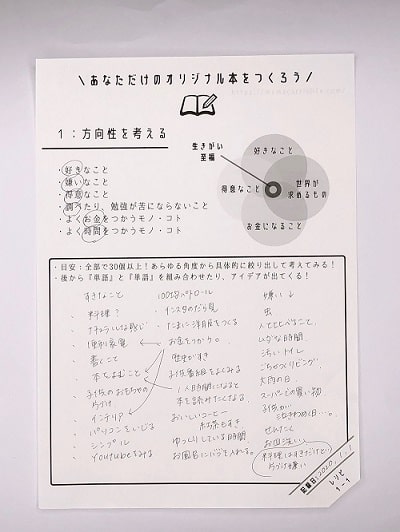 \あなただけのオリジナル本をつくろう/
1:方向性を考える
・好きなこと
・嫌いなこと
・得意なこと
・調べたり、勉強が苦にならないこと
・よくお金をつかうモノ・コト
・よく時間をつかうモノ・コト
生きがい
至福
好きなこと
得意なこと
世界が
求めるもの
お金になること
・目安:全部で30個以上!あらゆる角度から具体的に絞り出して考えてみる!
・後から『単語』と『単語』を組み合わせたり、アイデアが出てくる!
すきなこと
料理?
ナチュラルな感じ
便利家電
書くこと
本をよむこと
子供のおもちゃの
片づけ
インテリア
パソコンをいじる
シンプル
Youtubeをみる
100均パトロール
インスタのだら見
たまに洋服をつくる
お金をつかう。
歴史がすき
1人時間になると
本を読みたくなる
おいしいコーヒー
紅茶もすき
ゆっくりしている時間
お風呂に入れる。
嫌い↓
虫
人と比べること。
ムダな時間
汚いトイレ
ごちゃつくリビング
大雨の日
スーパーの買い物
子供が
泣きわめく…。
せんたく
お皿洗い
料理はすきだけど
片づけ嫌い
記載日:2020.1.1
レシピ
1-1